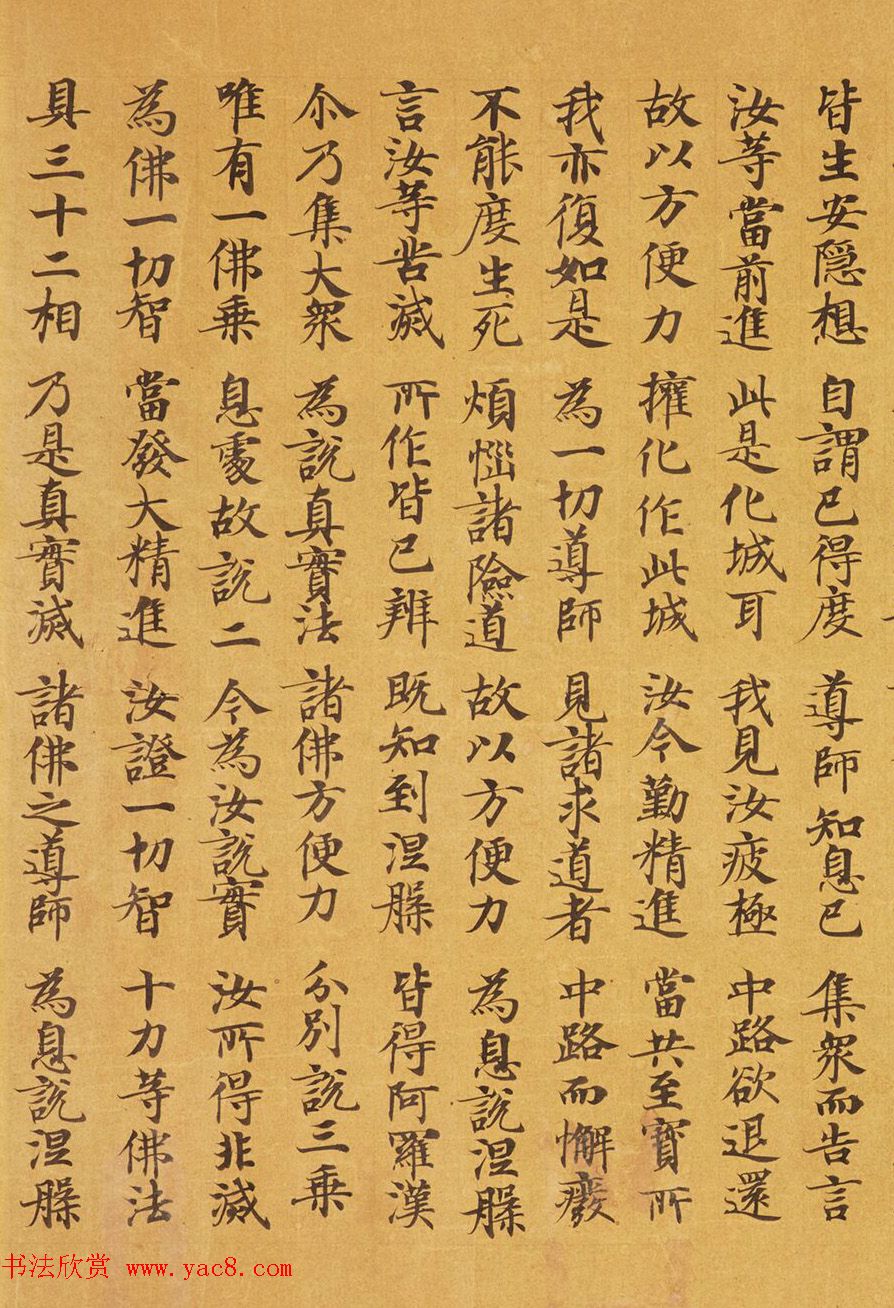 皆生安隱想 自謂已得度 導師知息已 集衆而告言
汝等當前進 此是化城耳 我見汝疲極 中路欲退還
故以方便力 擁化作此城 汝今勤精進 當共至寶所
我亦復如是 為一切導師 見諸求道者 中路而懈癈
不能度生死 煩惱諸險道 故以方便力 為息說涅槃
言汝等苦滅 所作皆已辨 既知到涅槃 皆得阿羅漢
尒乃集大衆 為說真實法 諸佛方便力 分別說三乗
唯有一佛乗 息處故說二 今為汝說實 汝所得非滅
為佛一切智 當發大精進 汝證一切智 十力等佛法
具三十二相 乃是真實滅 諸佛之導師 為息說涅槃
书法欣赏 www.yac8.com